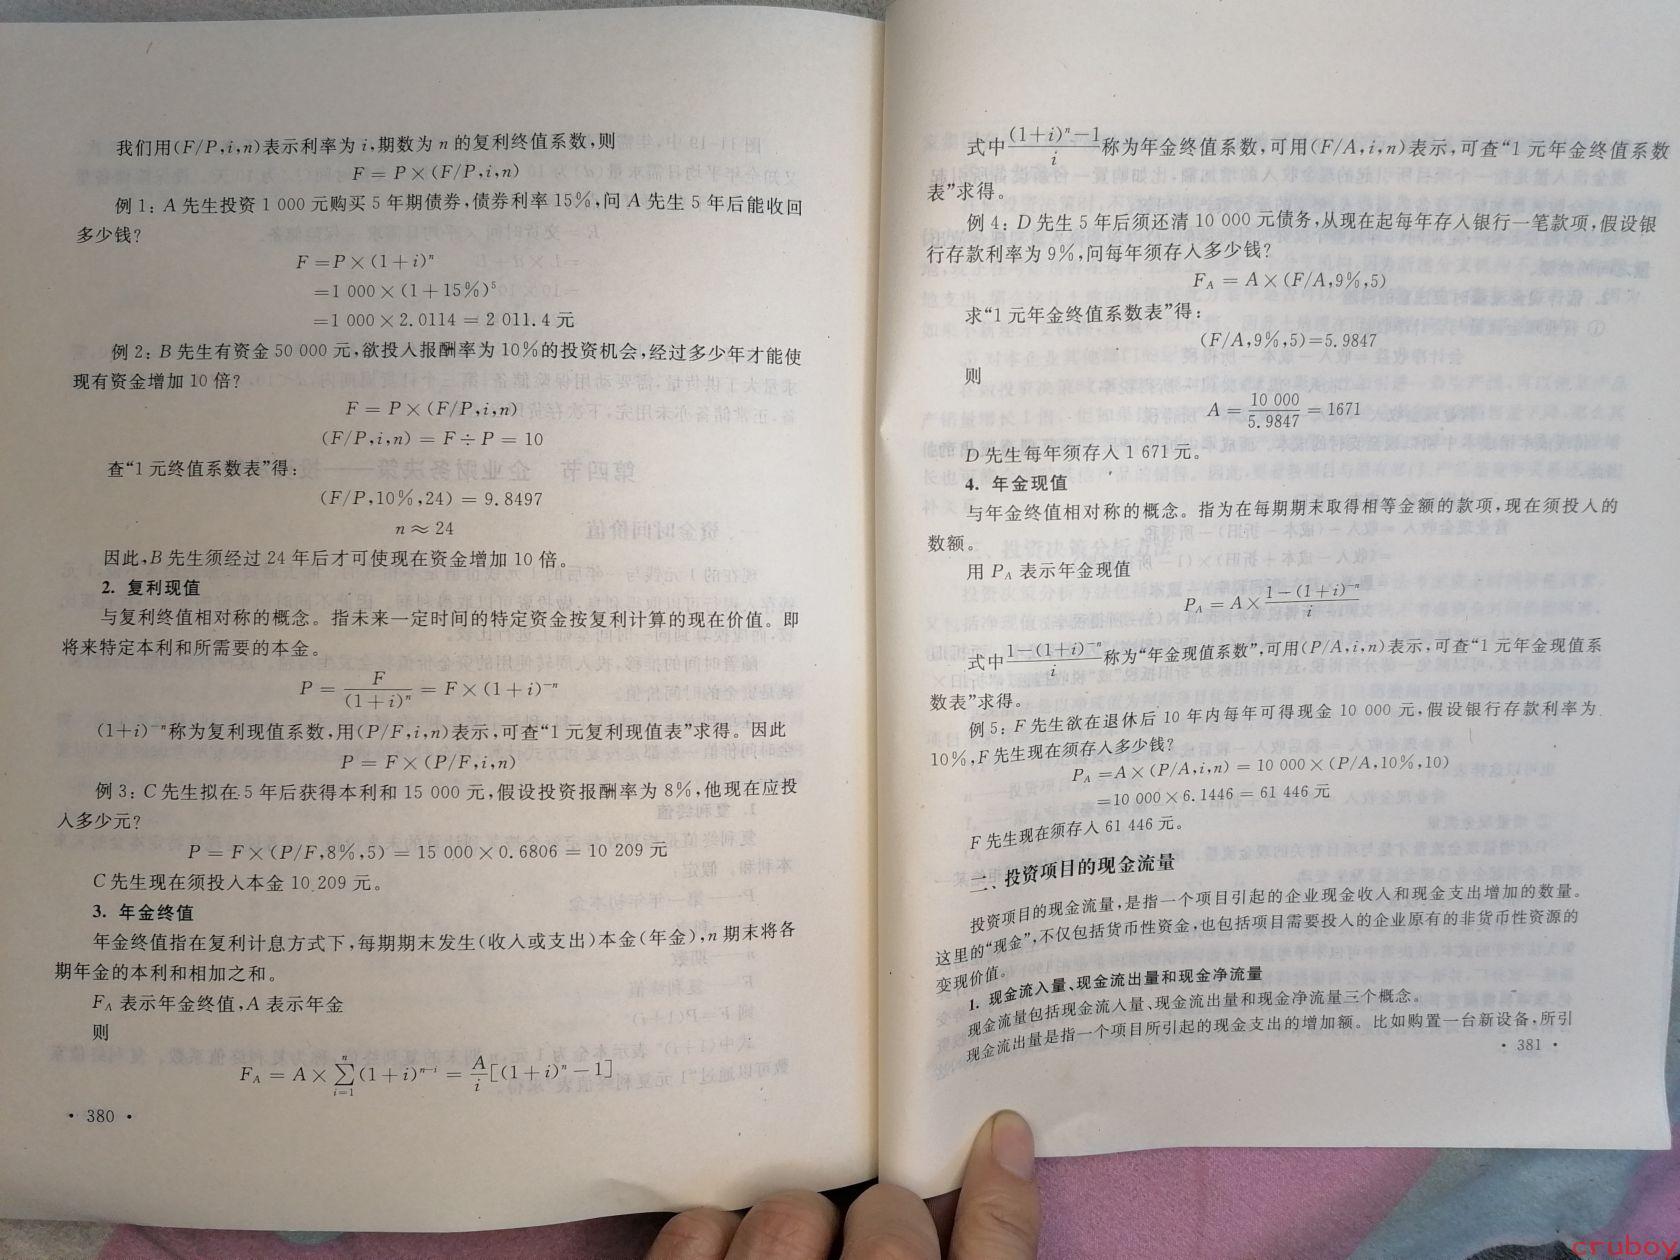 我们用(F/P,i,n)表示利率为 i,期数为 n 的复利终值系数,则
F = P×(F/P,i,n)
例 1: A 先生投资 1 000 元购买 5 年期债券,债券利率 15%,问 A 先生 5 年后能收回
多少钱?
F =P×(1+i)ⁿ
=1 000×(1+15%)⁵
=1 000×2.0114 = 2 011.4 元
例 2: B 先生有资金 50 000 元,欲投入报酬率为 10%的投资机会,经过多少年才能使
现有资金增加 10 倍?
F = P×(F/P,i,n)
(F/P,i,n) = F÷P = 10
查“1 元终值系数表”得:
(F/P,10%,24) = 9.8497
n≈24
因此,B 先生须经过 24 年后才可使现在资金增加 10 倍。
2. 复利现值
与复利终值相对称的概念。指未来一定时间的特定资金按复利计算的现在价值。即
将来特定本利和所需要的本金。
P = F/(1+i)ⁿ = F×(1+i)⁻ⁿ
(1+i)⁻ⁿ称为复利现值系数,用(P/F,i,n)表示,可查“1 元复利现值表”求得。因此
P = F×(P/F,i,n)
例 3: C 先生拟在 5 年后获得本利和 15 000 元,假设投资报酬率为 8%,他现在应投
入多少元?
P = F×(P/F,8%,5) = 15 000×0.6806 = 10 209 元
C 先生现在须投入本金 10 209 元。
3. 年金终值
年金终值指在复利计息方式下,每期期末发生(收入或支出)本金(年金),n 期末将各
期年金的本利和相加之和。
F_A 表示年金终值,A 表示年金
则
F_A = A×∑(i=1..n)(1+i)ⁿ⁻ⁱ = A/i[(1+i)ⁿ-1]
• 380 •
式中((1+i)ⁿ-1)/i 称为年金终值系数,可用(F/A,i,n)表示,可查“1 元年金终值系数
表”求得。
例 4: D 先生 5 年后须还清 10 000 元债务,从现在起每年存入银行一笔款项,假设银
行存款利率为 9%,问每年须存入多少钱?
F_A = A×(F/A,9%,5)
求“1 元年金终值系数表”得:
(F/A,9%,5)=5.9847
则
A = 10 000/5.9847 = 1671
D 先生每年须存入 1 671 元。
4. 年金现值
与年金终值相对称的概念。指为在每期期末取得相等金额的款项,现在须投入的
数额。
用 P_A 表示年金现值
P_A = A×(1-(1+i)⁻ⁿ)/i
式中(1-(1+i)⁻ⁿ)/i 称为“年金现值系数”,可用(P/A,i,n)表示,可查“1 元年金现值系
数表”求得。
例 5: F 先生欲在退休后 10 年内每年可得现金 10 000 元,假设银行存款利率为
10%,F 先生现在须存入多少钱?
P_A =A×(P/A,i,n) = 10 000×(P/A,10%,10)
=10 000×6.1446 = 61 446 元
F 先生现在须存入 61 446 元。
二、投资项目的现金流量
投资项目的现金流量,是指一个项目引起的企业现金收入和现金支出增加的数量。
这里的“现金”,不仅包括货币性资金,也包括项目需要投入的企业原有的非货币性资源的
变现价值。
1. 现金流入量、现金流出量和现金净流量
现金流量包括现金流入量、现金流出量和现金净流量三个概念。
现金流出量是指一个项目所引起的现金支出的增加额。比如购置一台新设备,所引
• 381 •
cruboy